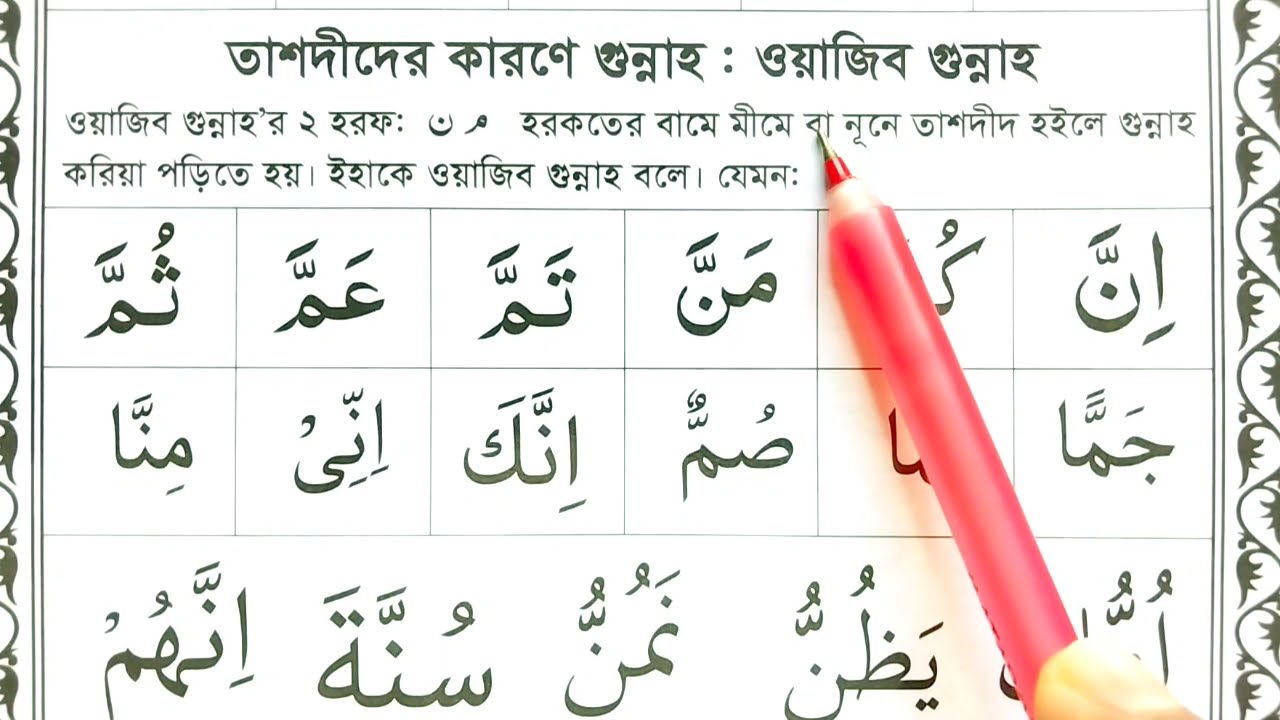 তাশদীদের কারণে গুন্নাহ : ওয়াজিব গুন্নাহ
ওয়াজিব গুন্নাহ’র ২ হরফ: م ن হরকতের বামে মীমে বা নূনে তাশদীদ হইলে গুন্নাহ
করিয়া পড়িতে হয়। ইহাকে ওয়াজিব গুন্নাহ বলে। যেমন:
اِنَّ مَنَّ تَمَّ عَمَّ ثُمَّ
جَمًّا صُمٌّ اِنَّكَ اِنِّىْ مِنَّا
يَظُنُّ نَمُنُّ سُنَّةَ اِنَّهُمْ